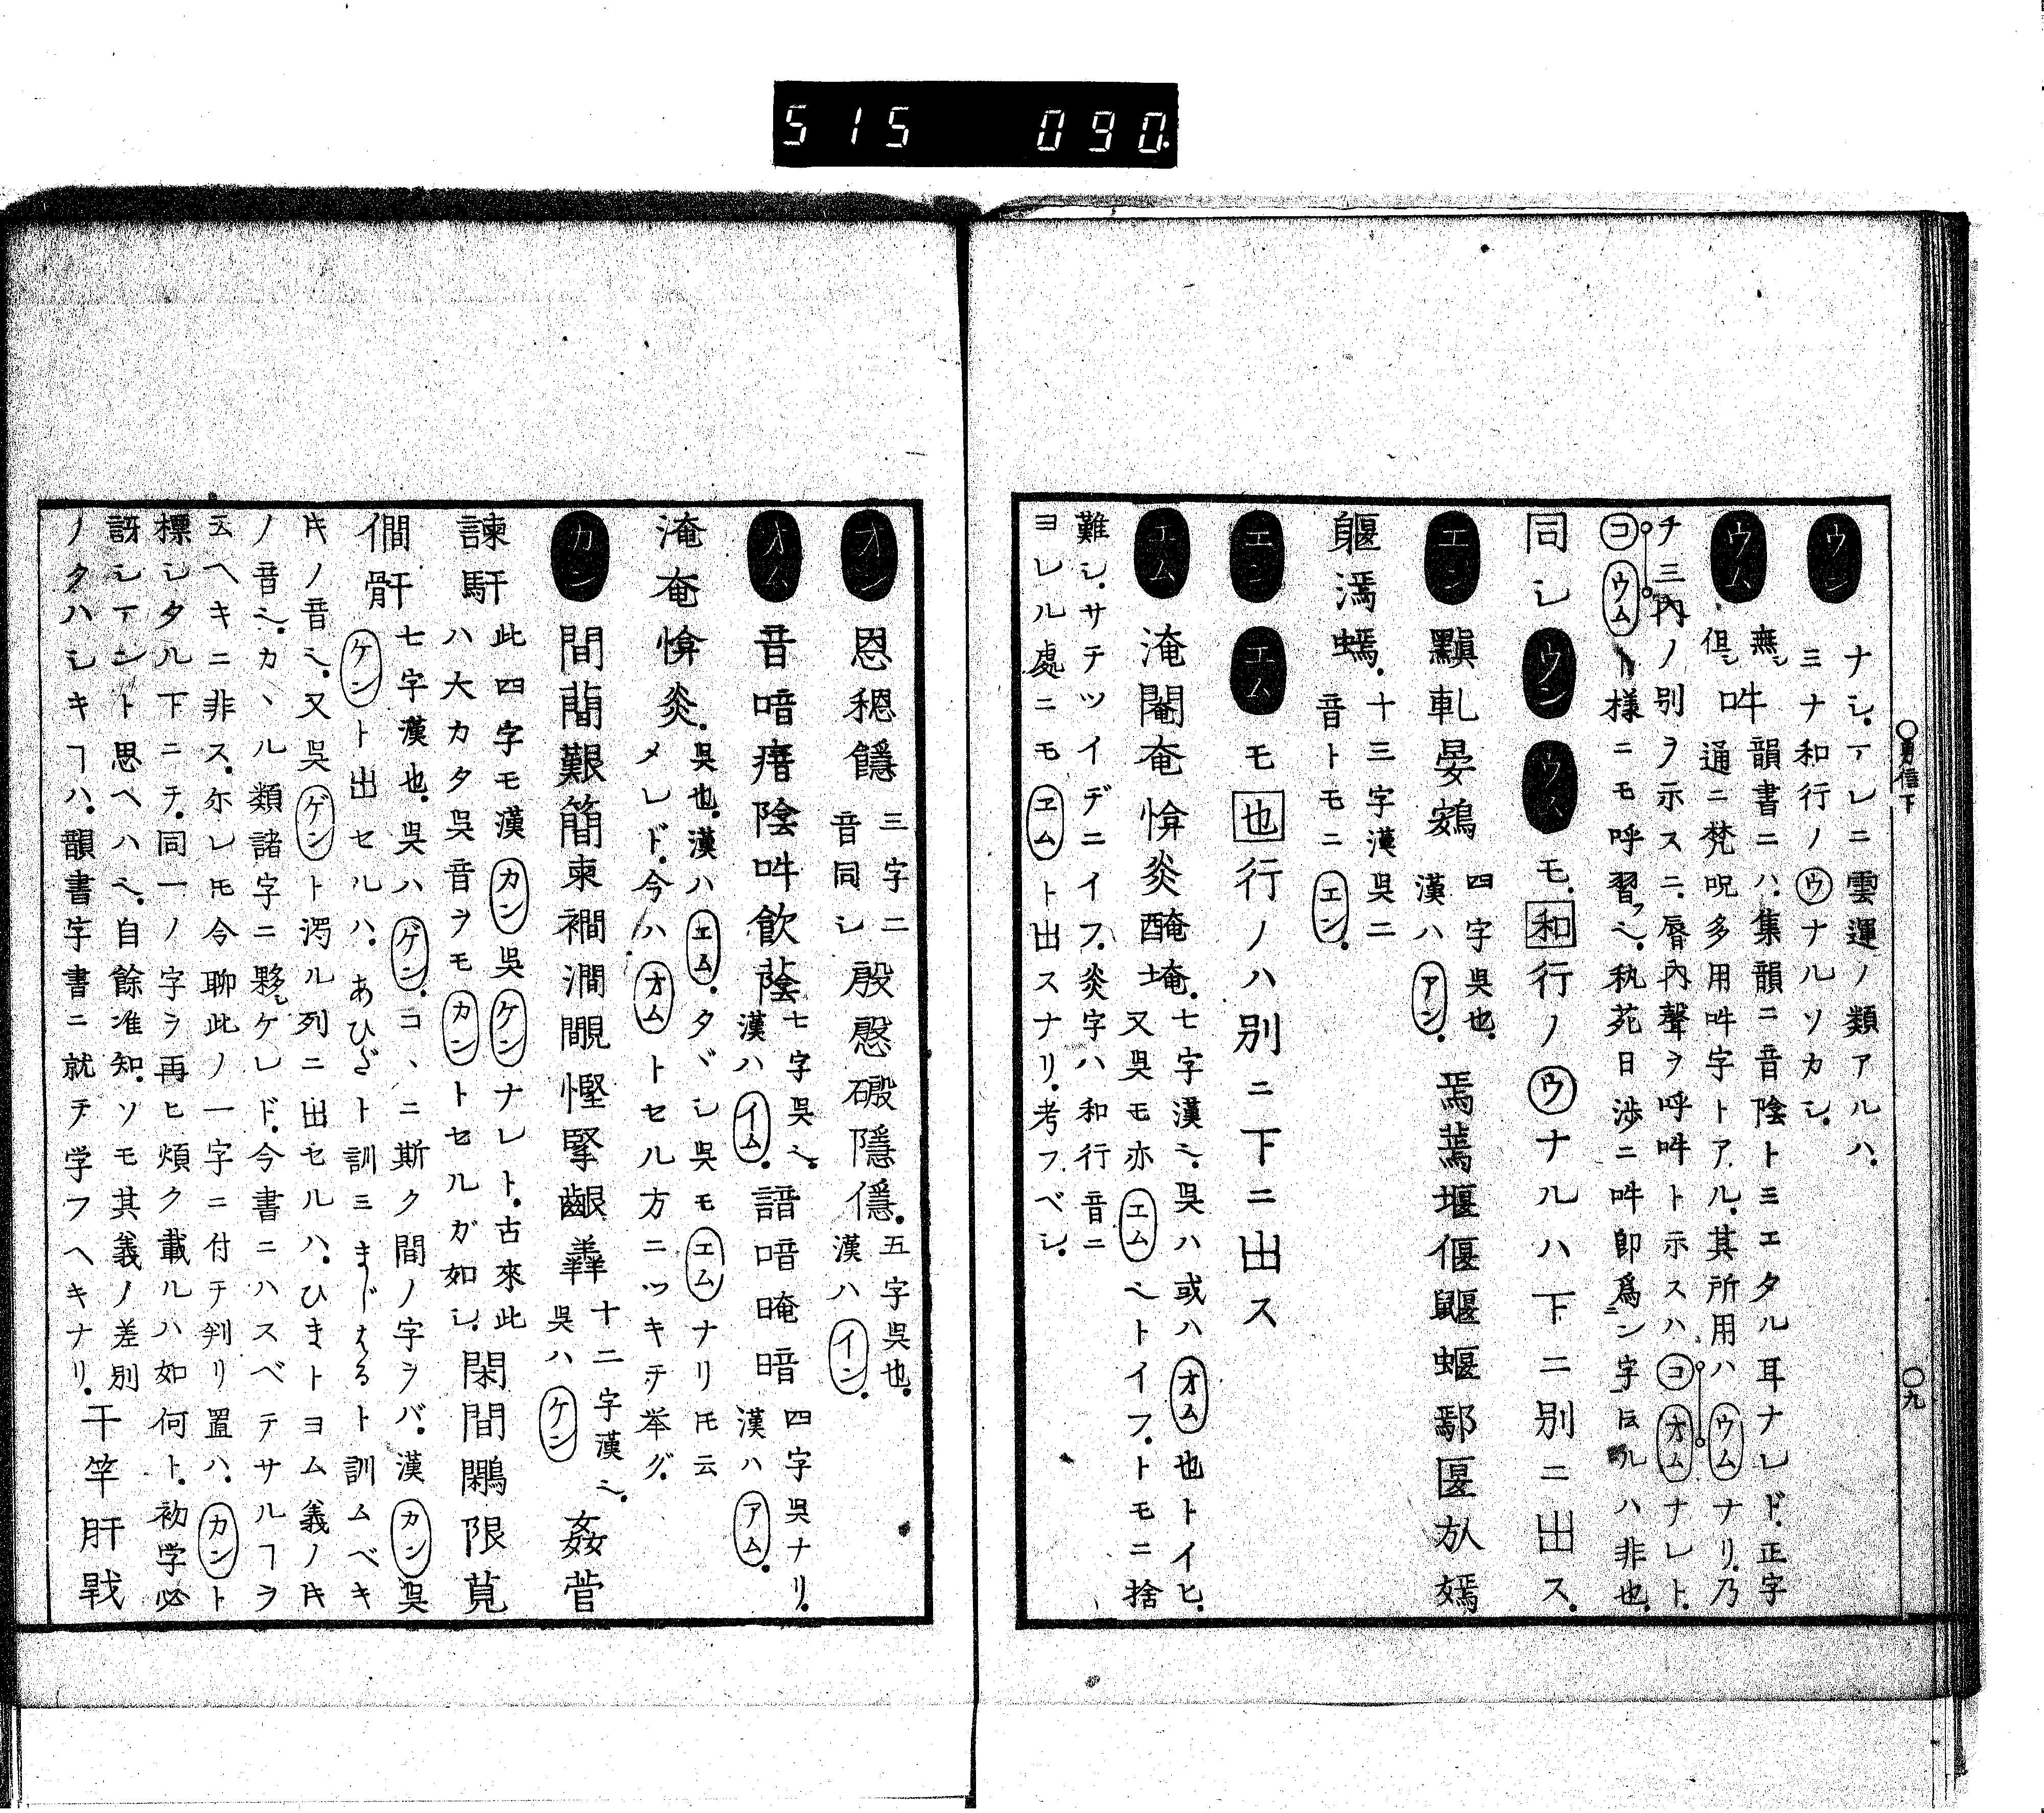 515 090
ウン
ナシ。テレニ雲運ノ類アルハ。
ミナ和行ノウナルソカシ。
ウム
無シ 吽韻書ニハ。集韻ニ音陰トミエタル耳ナレド。正字
但シ 口通ニ梵呪多用吽字トアル。其所用ハウムナリ。乃
チ三內ノ別ヲ示スニ。脣內聲ヲ呼吽ト示スハコオムナレト。
コウムト様ニモ呼習フヘ。秇苑日渉ニ吽卽爲ン字ニハ非也。
同シウンウムモ。和行ノウナルハ下ニ別ニ出ス。
エン 黰軋晏鴳 四字呉也。漢ハアン。焉蔫堰偃鼴蝘鄢匽㫃嫣
躽漹蟃。十三字漢呉ニ音トモニエン。
エンエムモ也行ノハ別ニ下ニ出ス
エム 淹閹奄愶炎醃埯。七字漢ヘ。呉ハ或ハオム也トイヒ。
又呉モ亦エムヘトイフ。トモニ捨
難シ。サテツイデニイフ。炎字ハ和行音ニ
ヨレル處ニモヱムト出スナリ。考フベシ。
オン 恩穏饐 三字二音同シ 殷慇磤隱㒚。五字呉也。漢ハイン。
オム 音喑瘖陰吽飮蔭 七字呉ヘ。漢ハイム。諳喑晻暗 四字呉ナリ。漢ハアム。
淹奄愶炎。呉也。漢ハエム。タヾシ呉モエムナリ𪜈云
メレド。今ハオムトセル方ニツキテ举グ。
カン 間蕑艱簡柬襉澗覵慳掔齦鼘 十二字漢ヘ。呉ハケン 姦菅
諫馯 此四字モ漢カン呉ケンナレト。古來此
ハ大カタ呉音ヲモカントセルガ如シ。閑間鷴限莧
僩骭 七字漢也。呉ハゲン。コヽニ斯ク間ノ字ヲバ。漢カン呉
ケント出セルハ。あひだト訓ミまじはるト訓ムベキ
𪜈ノ音ヘ。又呉ゲント濁ル列ニ出セルハ。ひまトヨム義ノ𪜈
ノ音ヘ。カヽル類諸字ニ夥シケレド。今書ニハスベテサルヿヲ
云ヘキニ非ス。尓レ𪜈今聊此ノ一字ニ付テ判リ置ハ。カント
標シタル下ニテ。同一ノ字ヲ再ヒ煩ク載ルハ如何ト。初学必
訝シテント思ヘハヘ。自餘准知。ソモ其義ノ差別
ノタハシキヿハ。韻書字書ニ就テ学フヘキナリ。干竿肝戦
九